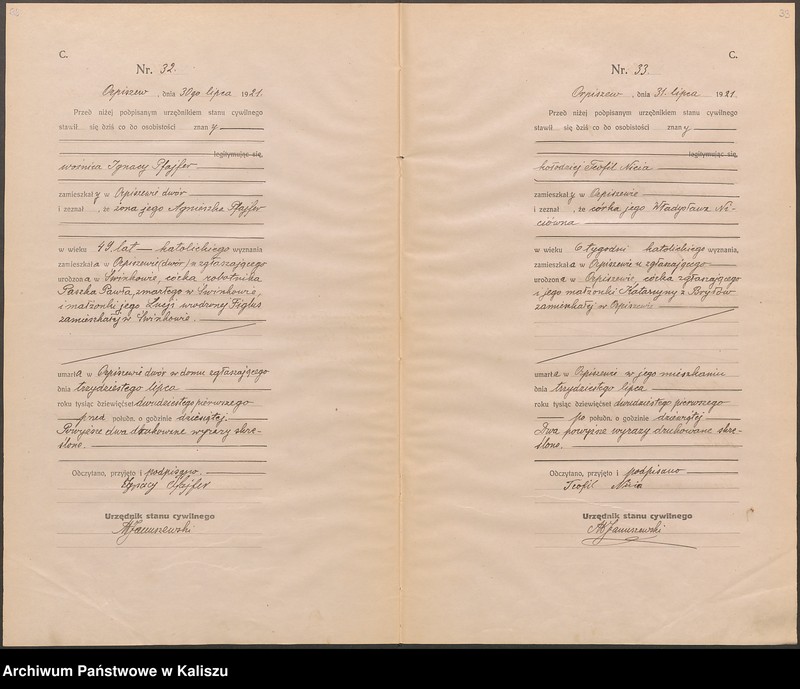 C.
Nr. 32.
Orpiszew, dnia 30go lipca 1921.
Przed niżej podpisanym urzędnikiem stanu cywilnego
stawił się dziś co do osobistości znany
legitymując się,
woźnica Ignacy Pfajfer
zamieszkały w Orpiszewie dwór
i zeznał, że żona jego Agnieszka Pfajfer
w wieku 49. lat — katolickiego wyznania
zamieszkała w Orpiszewie/dwór/ u zgłaszającego
urodzona w Swinkowie, córka robotnika
Paszka Pawła, zmarłego w Swinkowie,
i małżonki jego Łucji urodzonej Figlus
zamieszkałej w Swinkowie.
umarła w Orpiszewie dwór w domu zgłaszającego
dnia trzydziestego lipca
roku tysiąc dziewięćset dwudziestego pierwszego
przed połudn. o godzinie dziesiątej.
Powyższe dwa drukowane wyrazy skre-
ślono.
Odczytano, przyjęto i podpisano.
Ignacy Pfajfer
Urzędnik stanu cywilnego
Januszewski
33
C.
Nr. 33.
Orpiszew, dnia 31. lipca 1921.
Przed niżej podpisanym urzędnikiem stanu cywilnego
stawił się dziś co do osobistości znany
legitymując się,
kołodziej Teofil Nicia
zamieszkały w Orpiszewie
i zeznał, że córka jego Władysława Ni-
ciówna
w wieku 6 tygodni katolickiego wyznania,
zamieszkała w Orpiszewie u zgłaszającego
urodzona w Orpiszewie, córka zgłaszającego
i jego małżonki Katarzyny z Brylów
zamieszkałej w Orpiszewie
umarła w Orpiszewie w jego mieszkaniu
dnia trzydziestego lipca
roku tysiąc dziewięćset dwudziestego pierwszego
po połudn. o godzinie dziewiątej.
Dwa powyższe wyrazy drukowane skre-
ślono.
Odczytano, przyjęto i podpisano
Teofil Nicia
Urzędnik stanu cywilnego
Januszewski
Archiwum Państwowe w Kaliszu